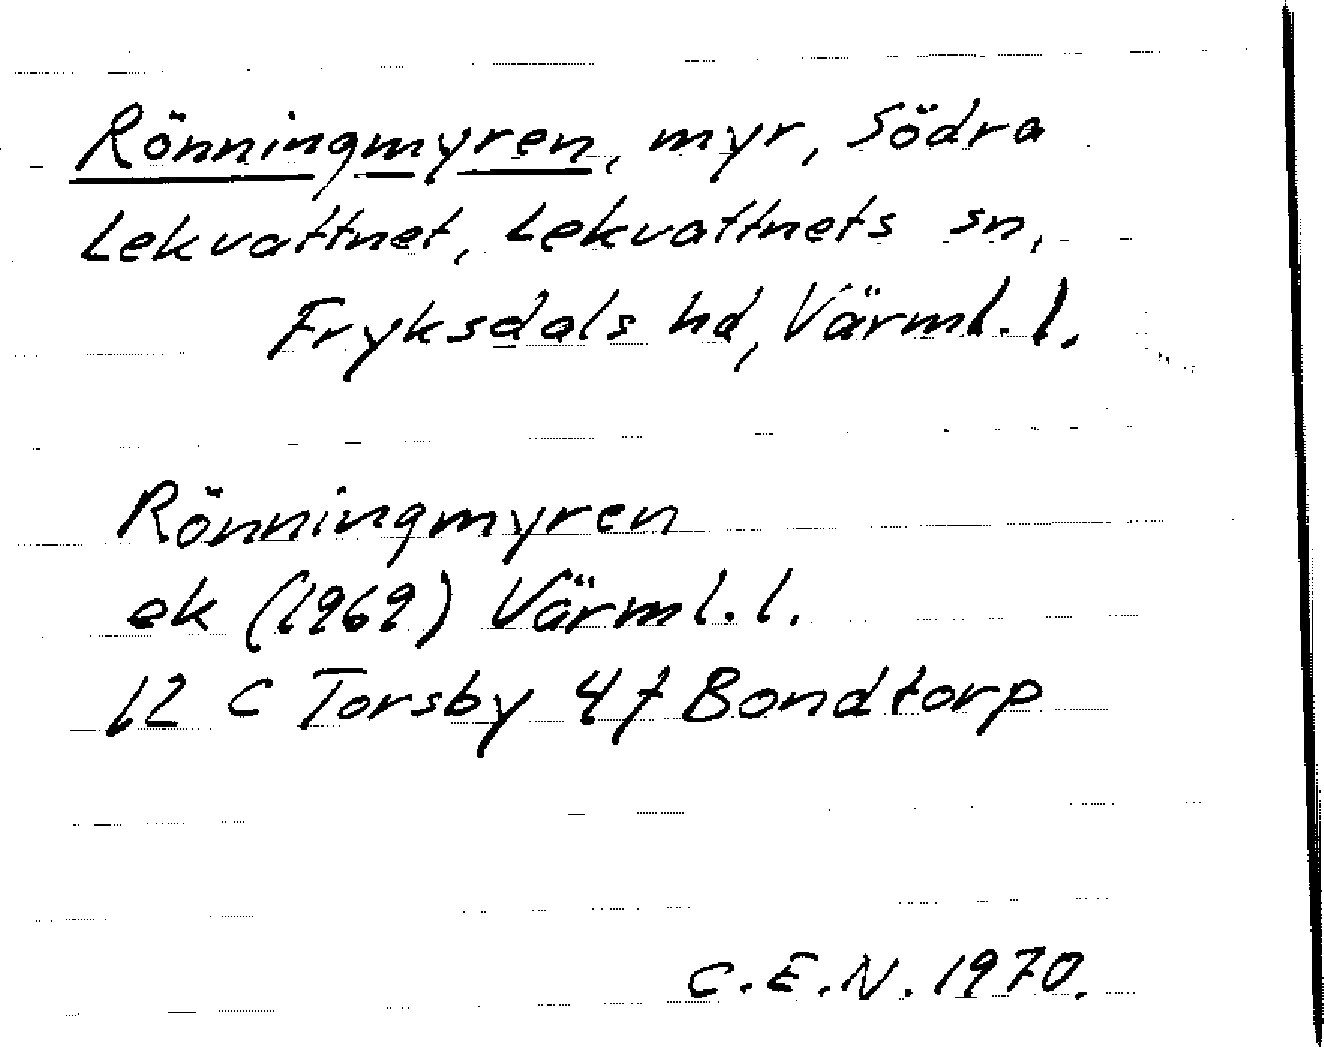 Rönningmyren, myr, Södra
Lekvattnet, Lekvattnets sn,
Fryksdals hd, Värml. l.
Rönningmyren
ek (1969) Värml. l.
12 C Torsby 4f Bondtorp
C.E.N. 1970.